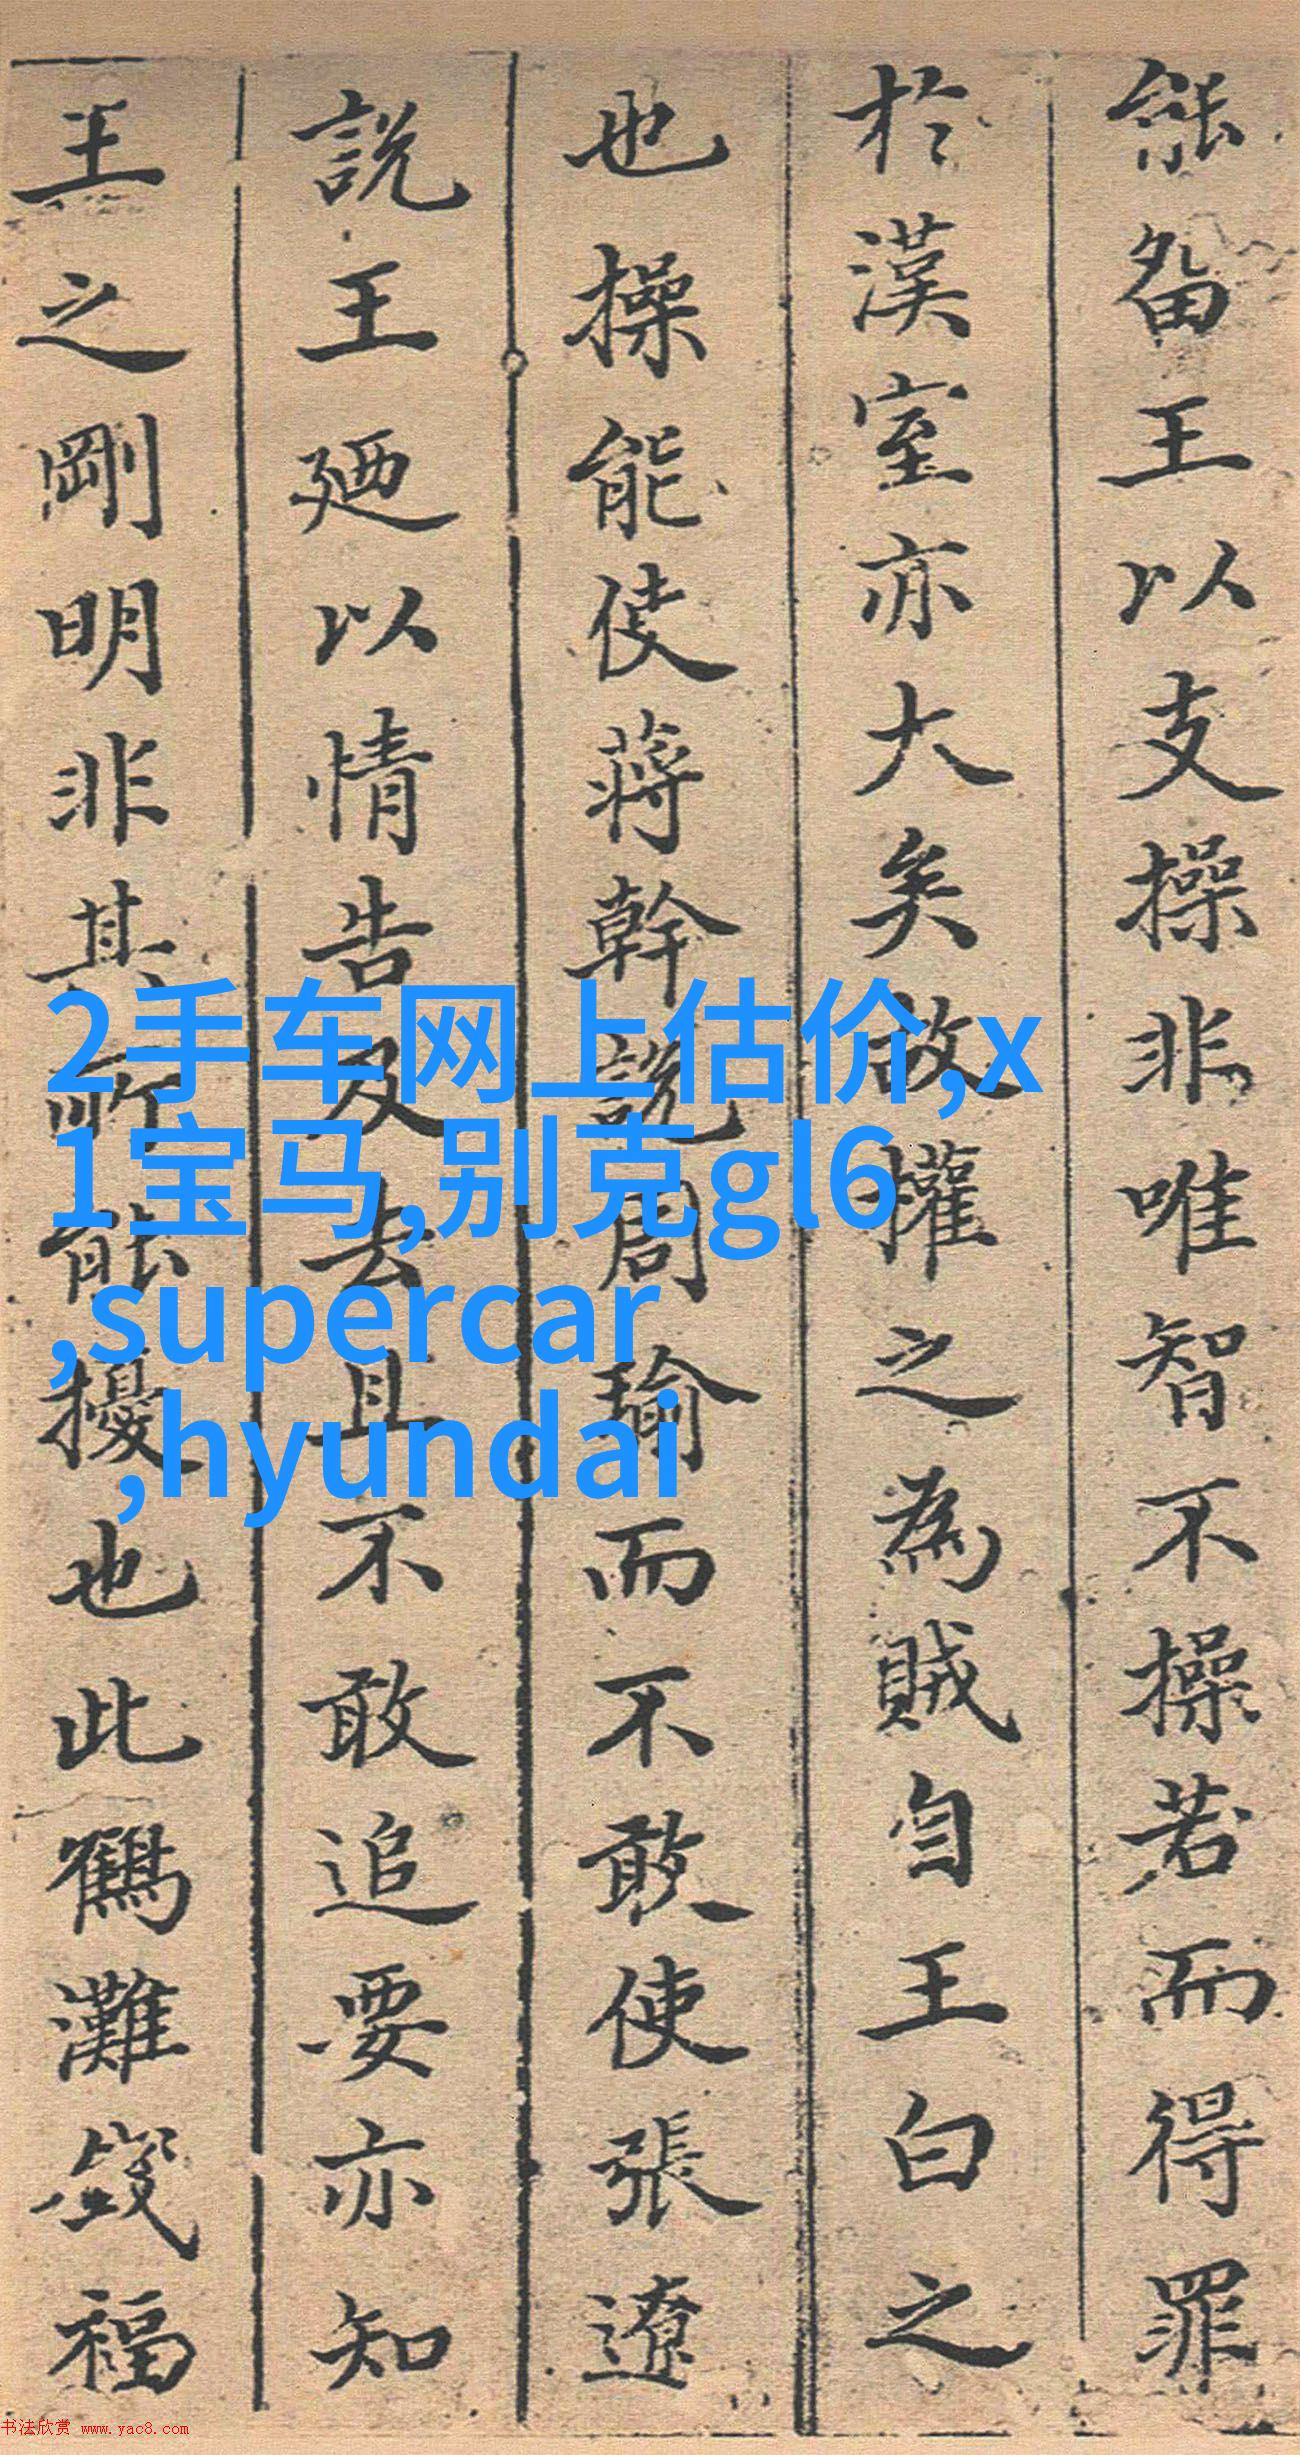 能留王以支操非唯智不操若而得罪
於漢室亦大矣故權之為賊自王白之
也操能使蔣幹説周瑜而不敢使張遼
説王廼以情告及去且不敢追要亦知
王之剛明非其所能擾也此鶴灘錢福
2手车网上估价,x
1宝马,别克gl6
,supercar
,hyundai
书法欣赏 www.yac8.com